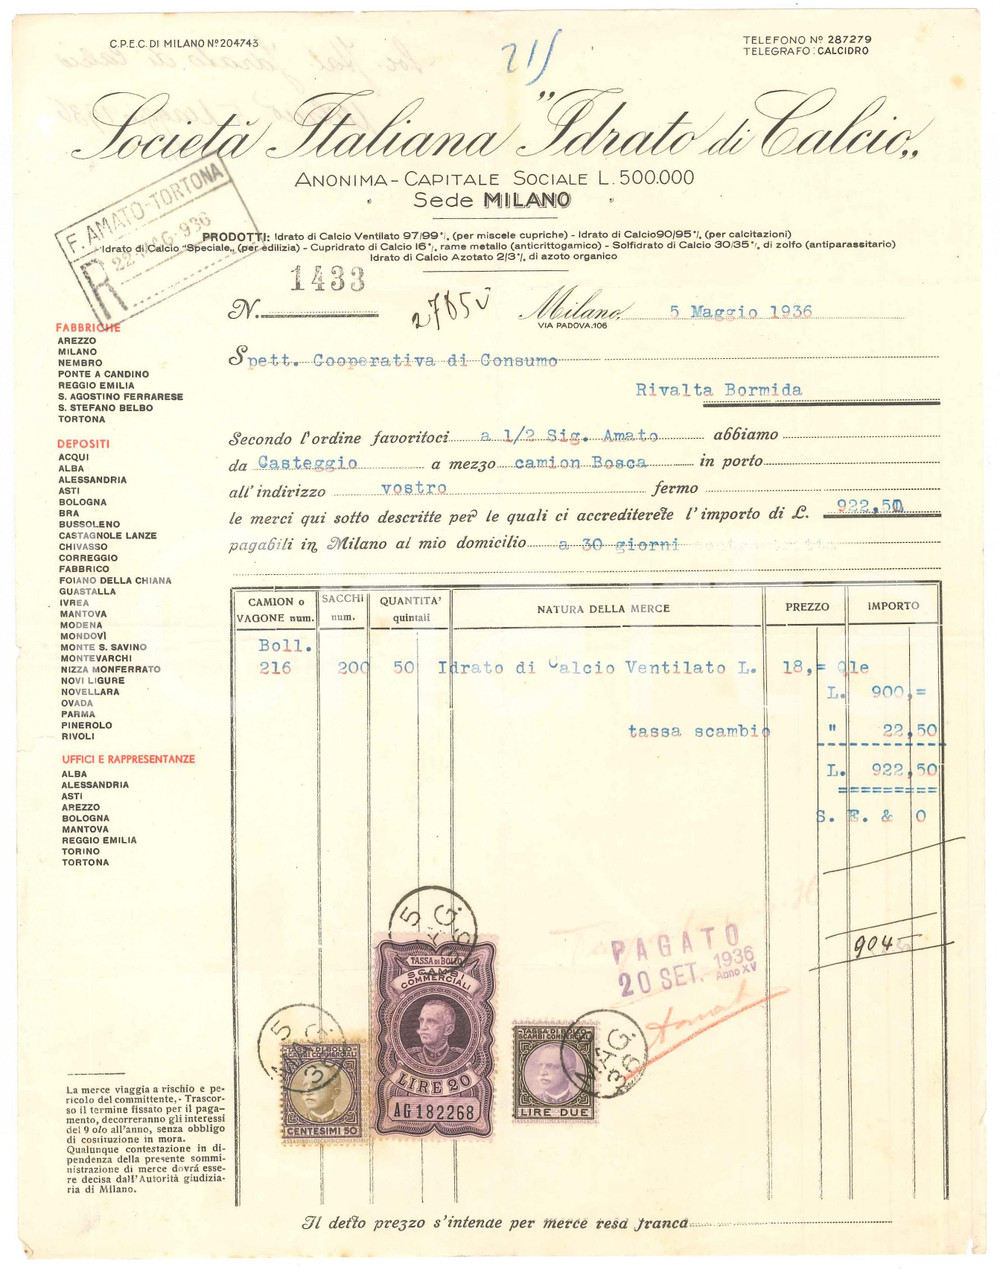 C.P.E.C. DI MILANO Nº 204743
TELEFONO Nº 287279
TELEGRAFO: CALCIDRO
215
Società Italiana "Idrato di Calcio„
ANONIMA - CAPITALE SOCIALE L. 500.000
Sede MILANO
F. AMATO - TORTONA
22 MAG. 936
R
PRODOTTI: Idrato di Calcio Ventilato 97/99%, (per miscele cupriche) - Idrato di Calcio 90/95%, (per calcitazioni)
Idrato di Calcio "Speciale„ (per edilizia) - Cupridrato di Calcio 16%, rame metallo (anticrittogamico) - Solfidrato di Calcio 30/35%, di zolfo (antiparassitario)
Idrato di Calcio Azotato 2/3%, di azoto organico
N. 1433
Milano, 5 Maggio 1936
VIA PADOVA, 106
Spett. Cooperativa di Consumo
Rivalta Bormida
Secondo l'ordine favoritoci a 1/2 Sig. Amato abbiamo
da Casteggio a mezzo camion Bosca in porto
all'indirizzo vostro fermo
le merci qui sotto descritte per le quali ci accrediterete l'importo di L. 922,50
pagabili in Milano al mio domicilio a 30 giorni
FABBRICHE
AREZZO
MILANO
NEMBRO
PONTE A CANDINO
REGGIO EMILIA
S. AGOSTINO FERRARESE
S. STEFANO BELBO
TORTONA
DEPOSITI
ACQUI
ALBA
ALESSANDRIA
ASTI
BOLOGNA
BRA
BUSSOLENO
CASTAGNOLE LANZE
CHIVASSO
CORREGGIO
FABBRICO
FOIANO DELLA CHIANA
GUASTALLA
IVREA
MANTOVA
MODENA
MONDOVÌ
MONTE S. SAVINO
MONTEVARCHI
NIZZA MONFERRATO
NOVI LIGURE
NOVELLARA
OVADA
PARMA
PINEROLO
RIVOLI
UFFICI E RAPPRESENTANZE
ALBA
ALESSANDRIA
ASTI
AREZZO
BOLOGNA
MANTOVA
REGGIO EMILIA
TORINO
TORTONA
CAMION o VAGONE num.
SACCHI num.
QUANTITA' quintali
NATURA DELLA MERCE
PREZZO
IMPORTO
Boll.
216 200 50 Idrato di Calcio Ventilato L. 18,= Qle
L. 900,=
tassa scambio " 22,50
L. 922,50
S. E. & O
904
PAGATO
20 SET. 1936
Anno XV
Amato
5 MAG. 36
TASSA DI BOLLO
SCAMBI COMMERCIALI
LIRE 20
AG 182268
5 MAG. 36
TASSA DI BOLLO
SCAMBI COMMERCIALI
CENTESIMI 50
MAG. 36
TASSA DI BOLLO
SCAMBI COMMERCIALI
LIRE DUE
La merce viaggia a rischio e pe-
ricolo del committente,- Trascor-
so il termine fissato per il paga-
mento, decorreranno gli interessi
del 9 o/o all'anno, senza obbligo
di costituzione in mora.
Qualunque contestazione in di-
pendenza della presente sommi-
nistrazione di merce dovrà esse-
re decisa dall'Autorità giudizia-
ria di Milano.
Il detto prezzo s'intende per merce resa franca